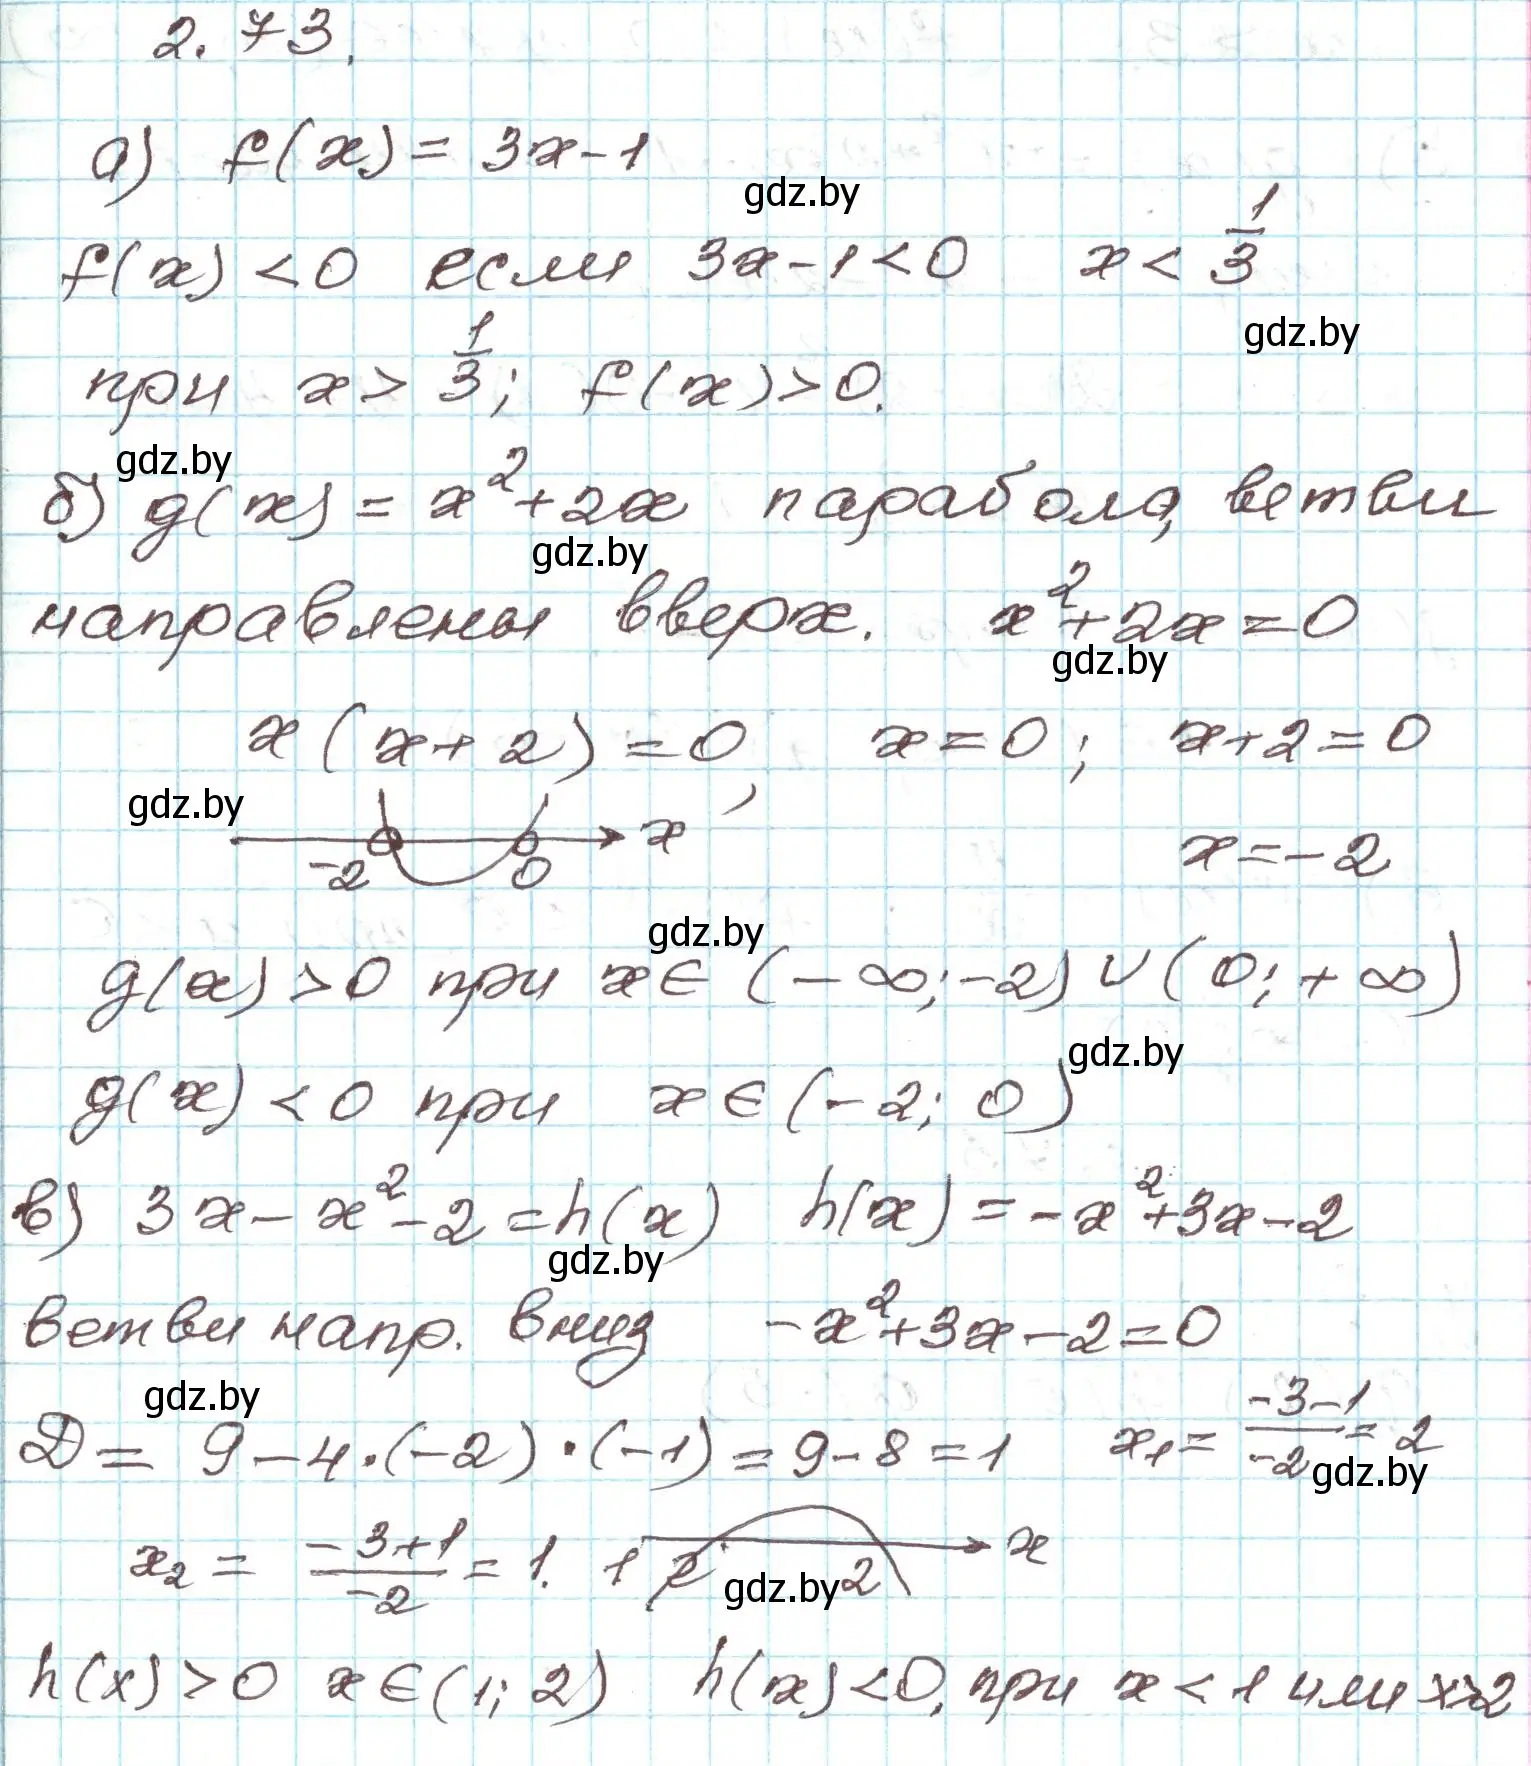 2.73.
а) f(x) = 3x-1
gdz.by
f(x) <0 если 3x-1<0 x< 1/3
gdz.by
при x> 1/3; f(x)>0.
gdz.by
б) g(x) = x²+2x парабола, ветви
gdz.by
направлены вверх. x²+2x=0
gdz.by
x(x+2)=0, x=0; x+2=0
gdz.by
-2 0 x
x=-2
gdz.by
g(x)>0 при x∈(-∞;-2)∪(0;+∞)
gdz.by
g(x)<0 при x∈(-2; 0)
в) 3x-x²-2=h(x) h(x)=-x²+3x-2
gdz.by
ветви напр. вниз -x²+3x-2=0
gdz.by
D= 9-4·(-2)·(-1)=9-8=1 x₁= (-3-1)/(-2) = 2
gdz.by
x₂ = (-3+1)/(-2) = 1. 1 2 x
gdz.by
h(x)>0 x∈(1; 2) h(x)<0, при x<1 или x>2